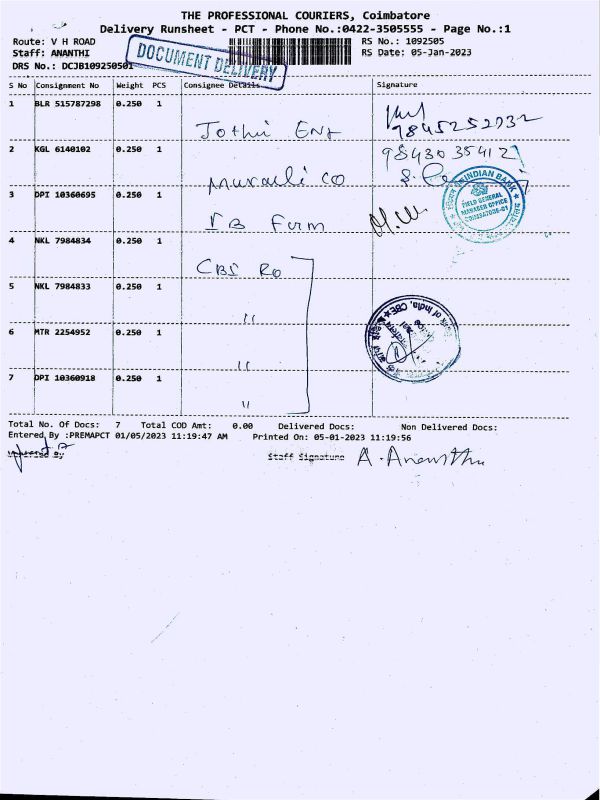 THE PROFESSIONAL COURIERS, Coimbatore
Delivery Runsheet - PCT - Phone No.:0422-3505555 - Page No.:1
Route: V H ROAD RS No.: 1092505
Staff: ANANTHI RS Date: 05-Jan-2023
DRS No.: DCJB109250501
DOCUMENT DELIVERY
S No Consignment No Weight PCS Consignee Details Signature
1 BLR 515787298 0.250 1
Jothi Ent 9845252932
2 KGL 6140102 0.250 1 9843035412
Murali co
3 DPI 10360695 0.250 1
INDIAN BANK
FIELD GENERAL
MANAGER OFFICE
COIMBATORE-01
IB Furm
4 NKL 7984834 0.250 1
CBS Ro
5 NKL 7984833 0.250 1
"
6 MTR 2254952 0.250 1
"
7 DPI 10360918 0.250 1
"
of India, CBE
Total No. Of Docs: 7 Total COD Amt: 0.00 Delivered Docs: Non Delivered Docs:
Entered By :PREMAPCT 01/05/2023 11:19:47 AM Printed On: 05-01-2023 11:19:56
Verified By Staff Signature A. Ananthi